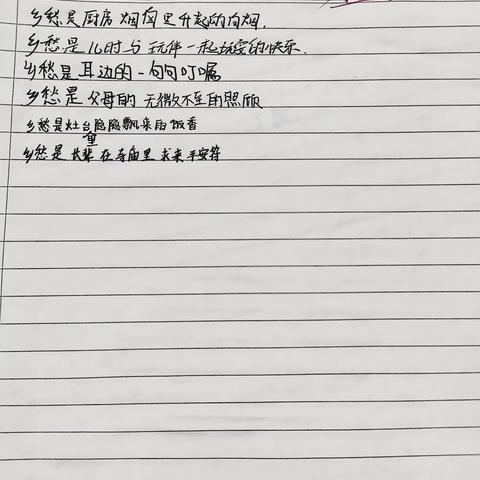 乡愁是厨房烟囱里升起的白烟.
乡愁是儿时与玩伴一起玩耍的快乐.
乡愁是耳边的一句句叮嘱
乡愁是父母的无微不至的照顾
乡愁是灶台隐隐飘来的饭香
乡愁是长辈在寺庙里求来平安符